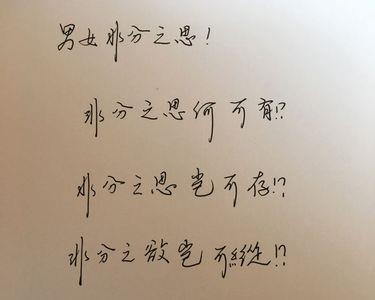 男女非分之思！
非分之思何可有！？
非分之思岂可存！？
非分之欲岂可纵！？